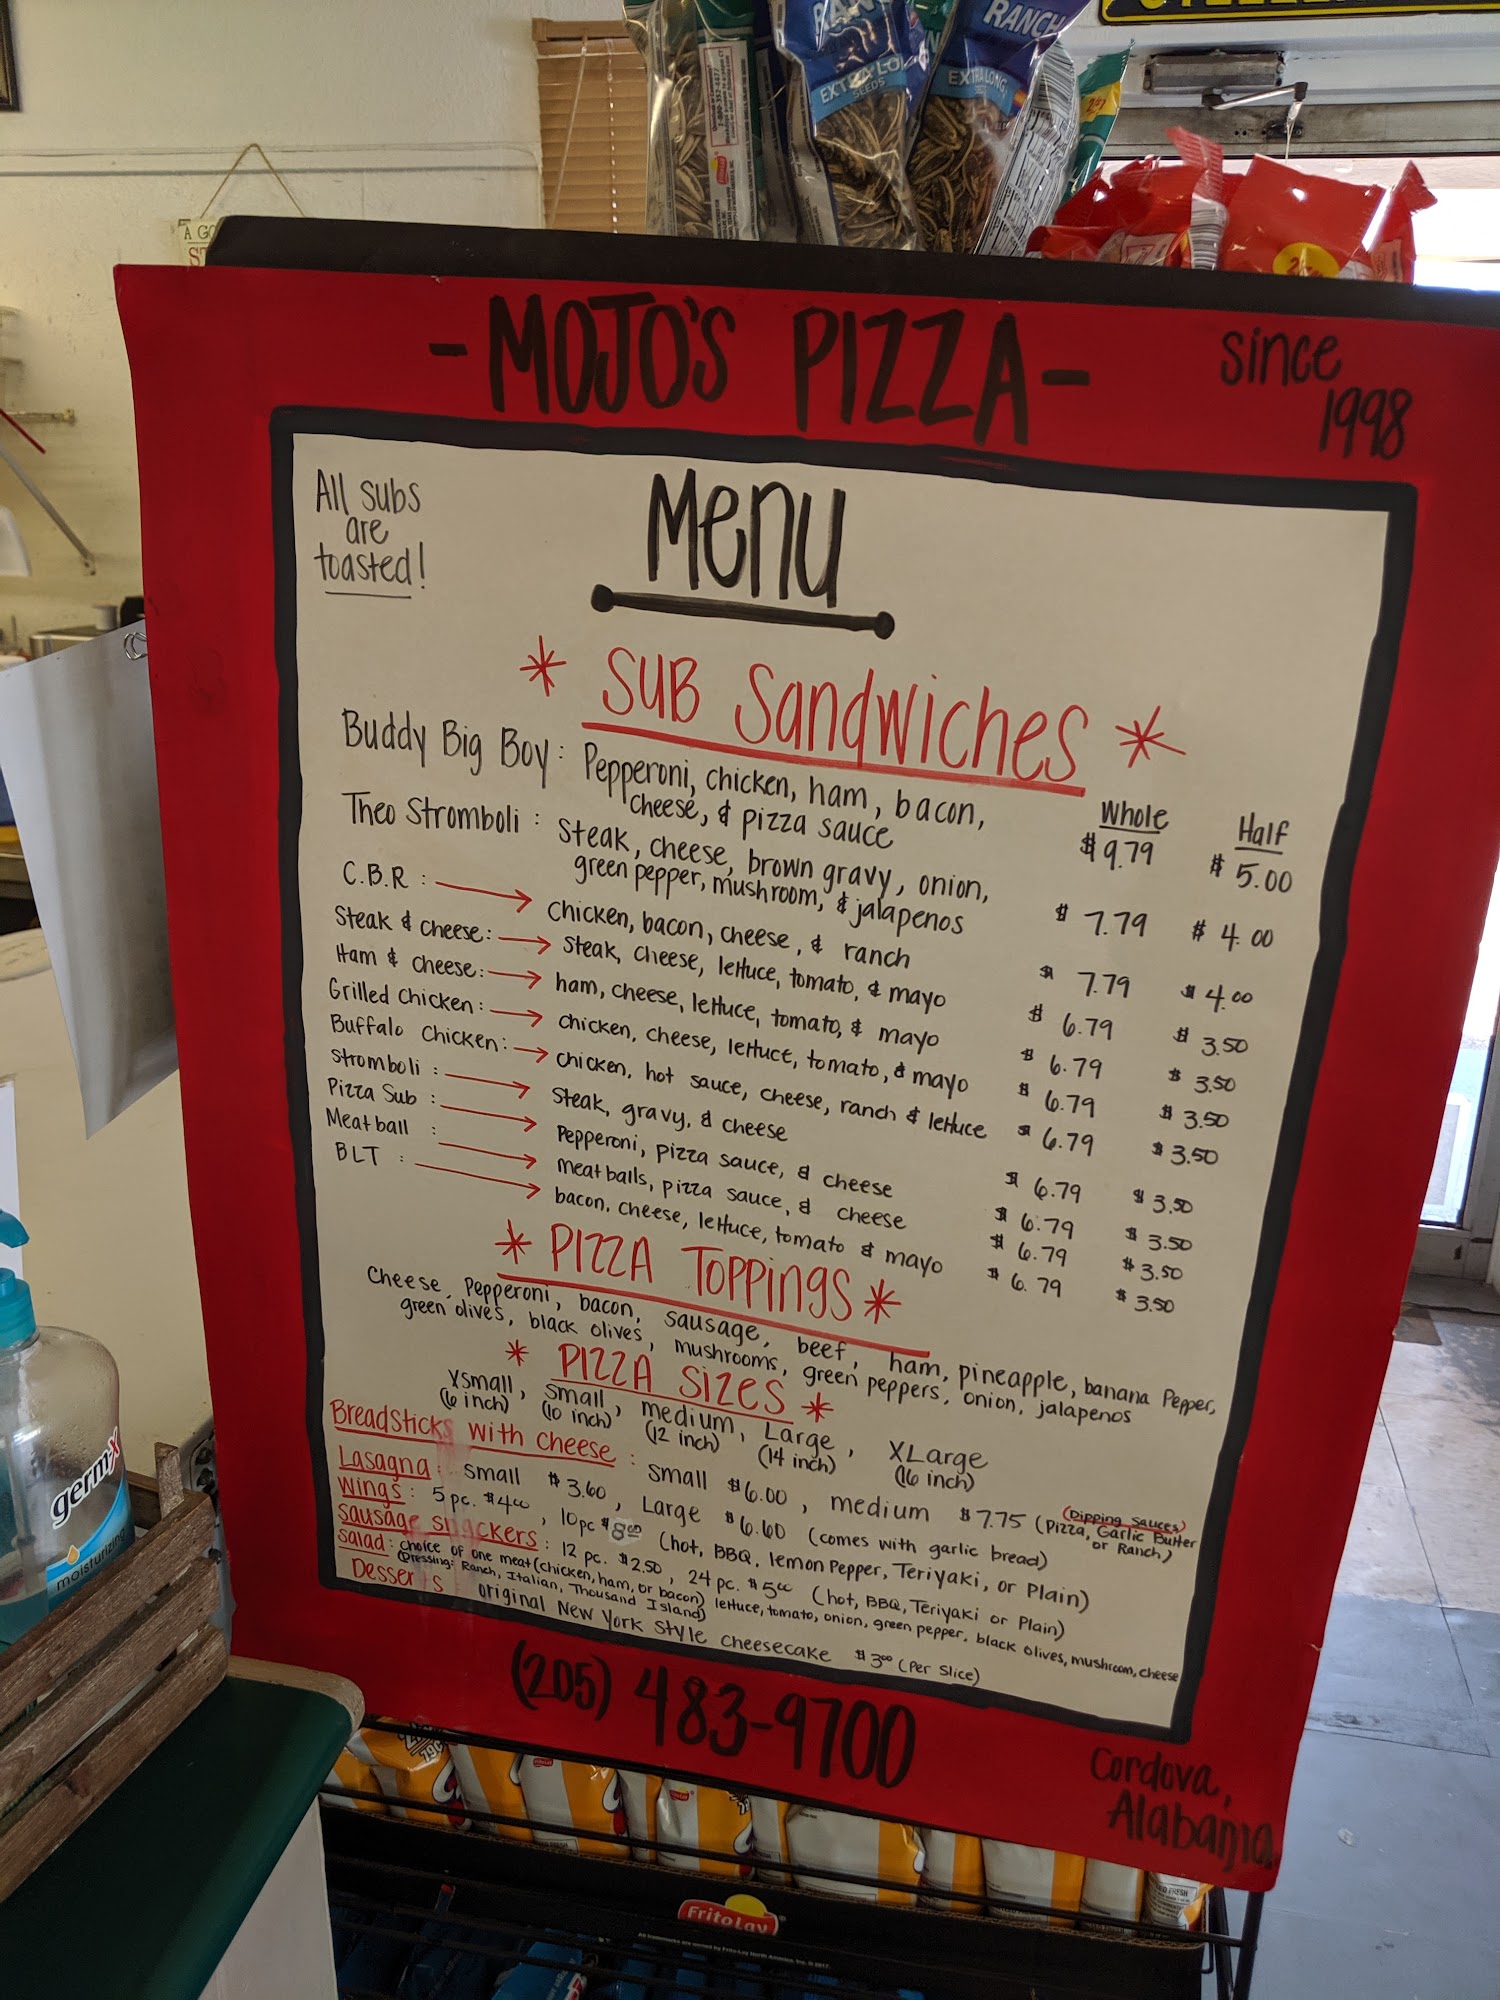 RANCH
EXTRA LONG
SEEDS
RANCH
EXTRA LONG
SEEDS
A GO
ST
- MOJO'S PIZZA -
since
1998
All subs
are
toasted!
Menu
* SUB Sandwiches *
Whole Half
Buddy Big Boy: Pepperoni, chicken, ham, bacon, $9.79 $5.00
cheese, & pizza sauce
Theo Stromboli: Steak, cheese, brown gravy, onion, $7.79 $4.00
green pepper, mushroom, & jalapenos
C.B.R: → Chicken, bacon, cheese, & ranch $7.79 $4.00
Steak & cheese: → steak, cheese, lettuce, tomato, & mayo $6.79 $3.50
Ham & cheese: → ham, cheese, lettuce, tomato, & mayo $6.79 $3.50
Grilled Chicken: → chicken, cheese, lettuce, tomato, & mayo $6.79 $3.50
Buffalo Chicken: → chicken, hot sauce, cheese, ranch & lettuce $6.79 $3.50
Stromboli: → Steak, gravy, & cheese $6.79 $3.50
Pizza Sub: → Pepperoni, pizza sauce, & cheese $6.79 $3.50
Meatball: → meatballs, pizza sauce, & cheese $6.79 $3.50
BLT: → bacon, cheese, lettuce, tomato & mayo $6.79 $3.50
* PIZZA Toppings *
Cheese, Pepperoni, bacon, sausage, beef, ham, pineapple, banana Pepper,
green olives, black olives, mushrooms, green peppers, onion, jalapenos
* PIZZA Sizes *
XSmall, small, medium, Large, XLarge
(6 inch) (10 inch) (12 inch) (14 inch) (16 inch)
Breadsticks with cheese: small $6.00, medium $7.75 (Dipping Sauces)
(Pizza, Garlic Butter
or Ranch)
Lasagna: small $3.60, Large $6.60 (comes with garlic bread)
Wings: 5 pc. $4.00, 10 pc $8.00 (hot, BBQ, lemon Pepper, Teriyaki, or Plain)
Sausage snackers: 12 pc. $2.50, 24 pc. $5.00 (hot, BBQ, Teriyaki or Plain)
Salad: choice of one meat (chicken, ham, or bacon) lettuce, tomato, onion, green pepper, black olives, mushroom, cheese
(Dressing: Ranch, Italian, Thousand Island)
Desserts original New York style cheesecake $3.00 (Per Slice)
(205) 483-9700
Cordova,
Alabama
germ-x
moisturizing
Frito Lay